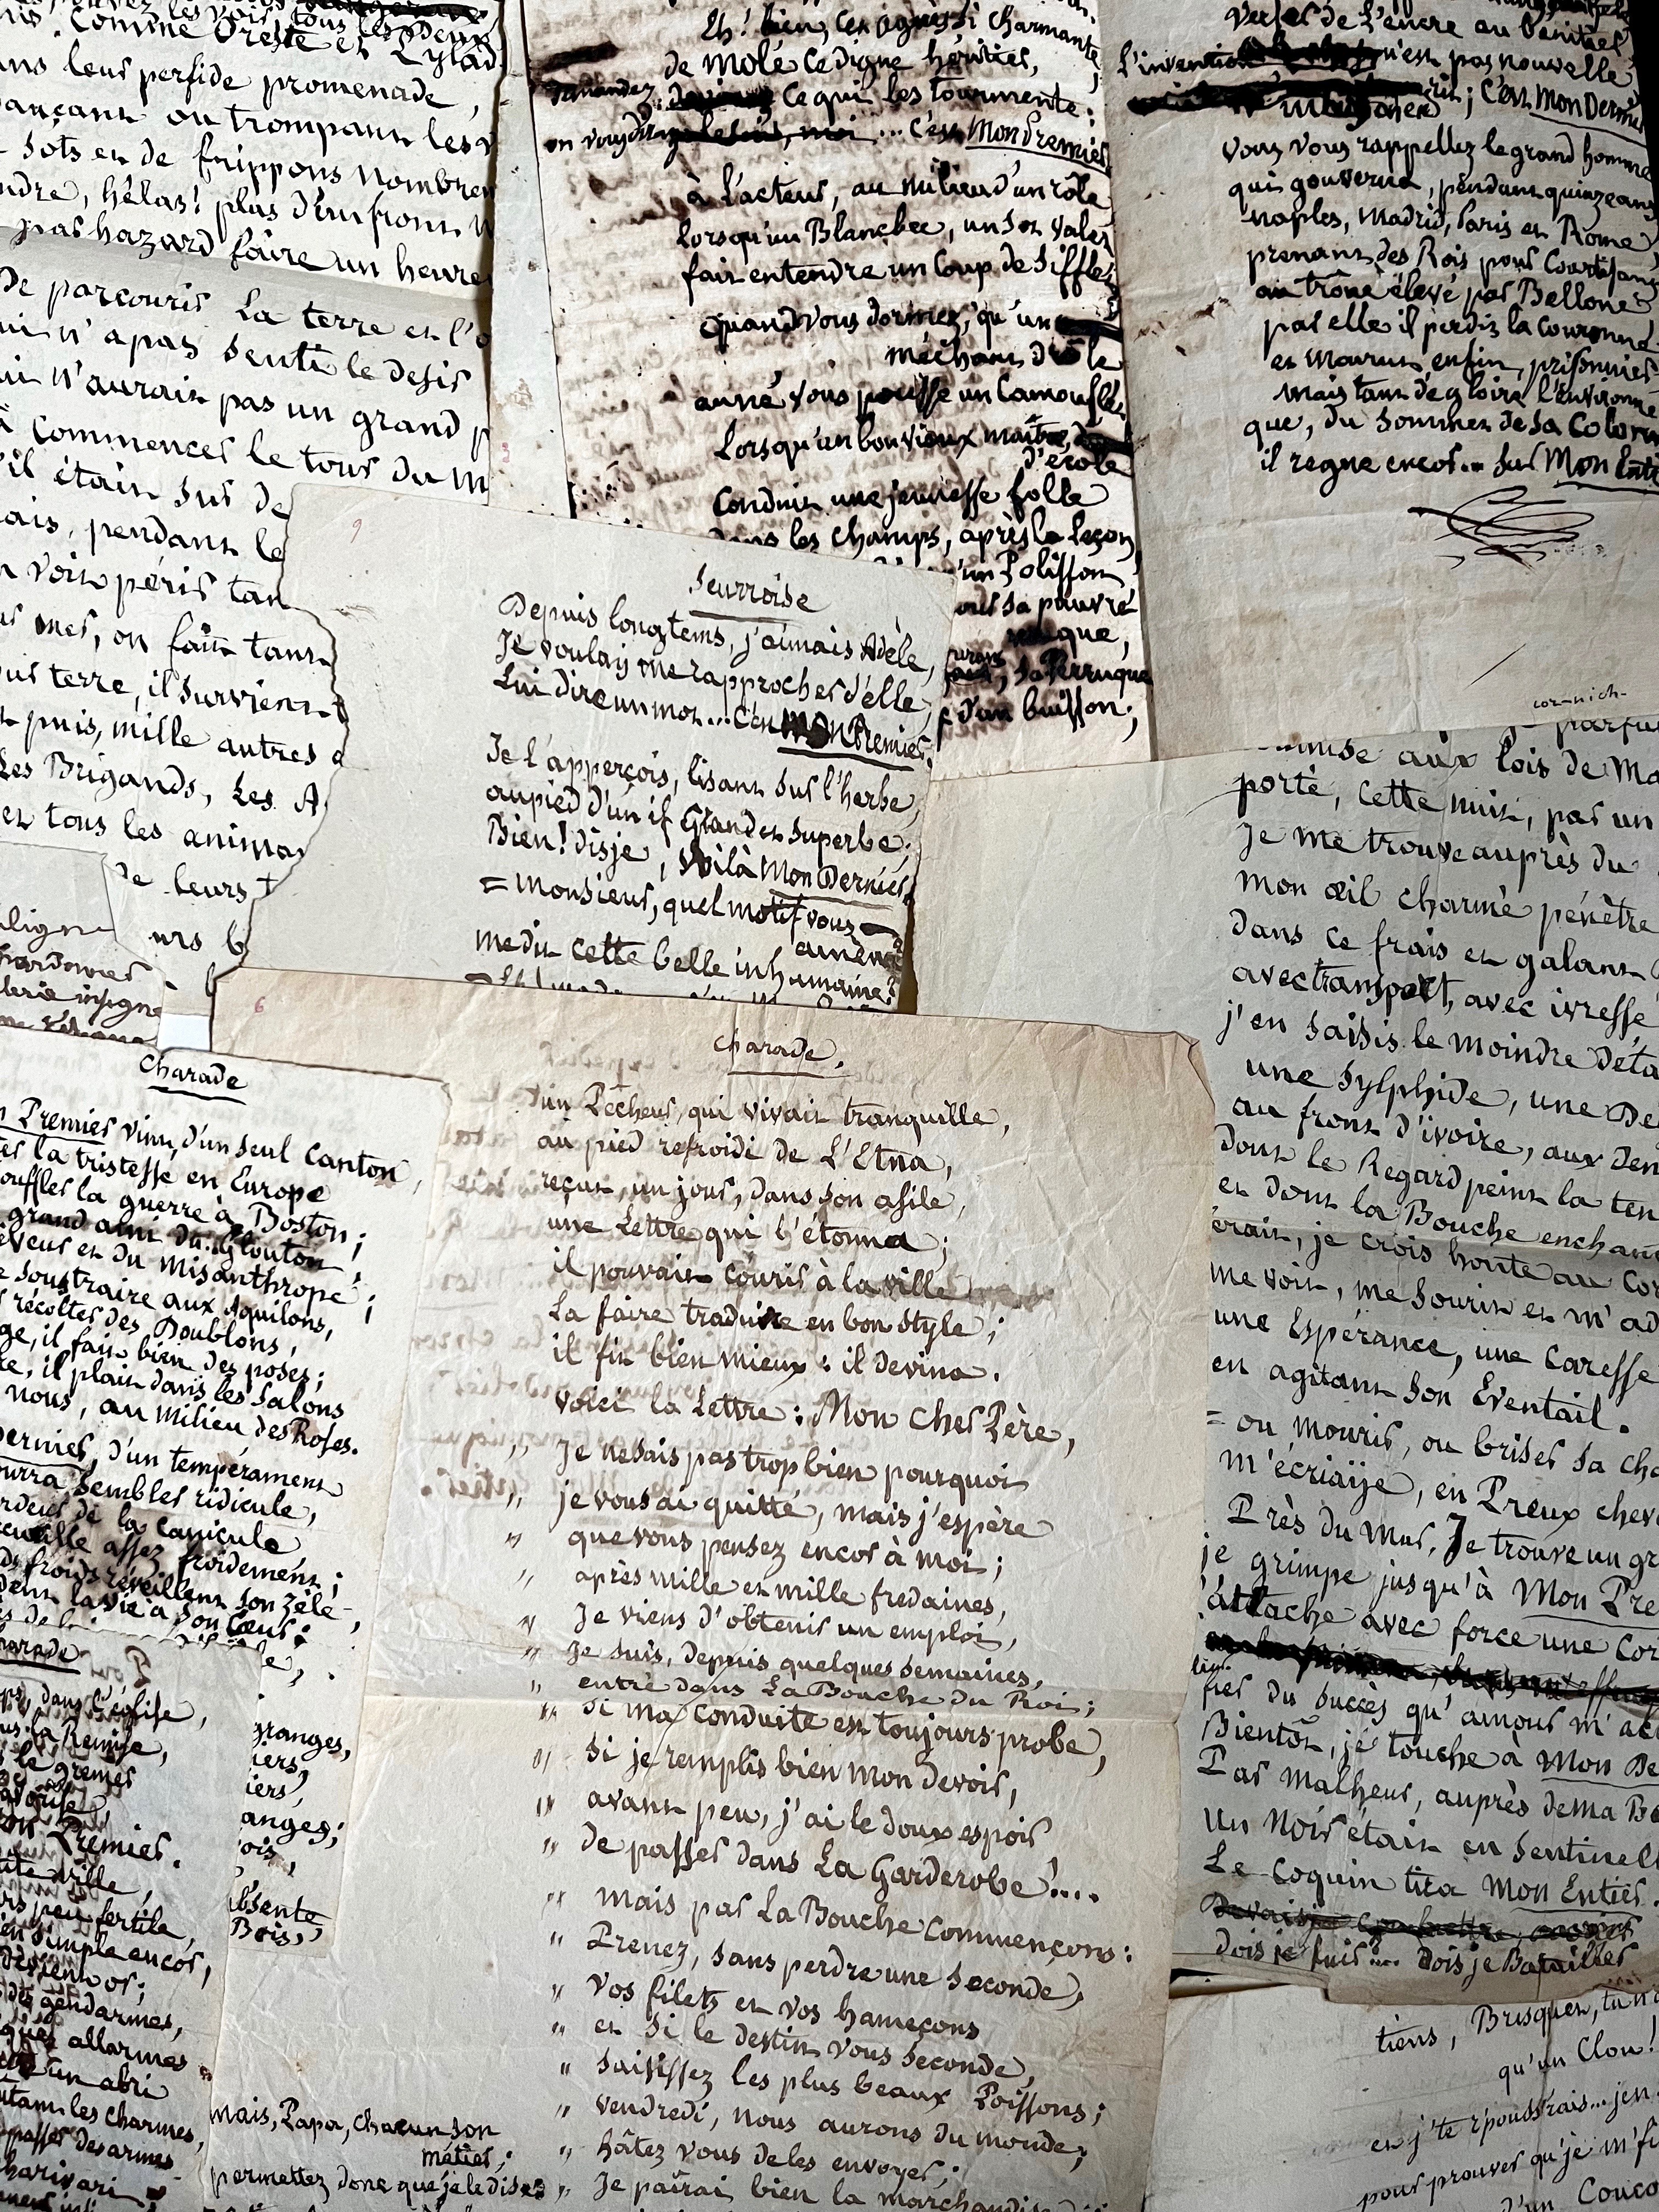 Comme Oreste et Pylad
ans leur perfide promenade,
ançant ou trompant les
sots et de frippons nombreu
ndre, hélas! plus d'un front
par hazard faire un heure
De parcourir la terre et l'o
ui n'a pas senti le desir
ui n'aurait pas un grand p
à commencer le tour du m
'il était sur de
ais, pendant le
n voit périr tan
ur mer, on fait tant
sur terre, il survient
et puis, mille autres
Les Brigands, les A
et tous les animau
de leurs
urs b
Eh! bien, ces si charmante,
de molé ce digne héritier,
demandez ce qui les tourmente:
on vous dira ... c'est Mon Premier
à l'acteur, au milieu d'un rôle
Lorsqu'un Blancbec, un sot valet
fait entendre un Coup de Sifflet
quand vous dormez, qu'un
méchant drôle
au né vous pousse un Camouflet
Lorsqu'un bon vieux maître
d'école
Conduit une jeunesse folle
dans les champs, après la Leçon
'un Polisson
sa pauvre
que,
sa Perruque
d'un buisson;
Verser de L'encre au benitier
L'invention n'est pas nouvelle
; C'est Mon Dernier
vous vous rappellez le grand homme
qui gouverna, pendant quinze ans
naples, Madrid, Paris et Rome
prenant des Rois pour Courtisans
au trône élevé par Bellone
par elle il perdit la Couronne
et Mourut enfin, prisonnier
mais tant de gloire l'environne
que, du sommet de sa Colonn
il regne encor... sur Mon Enti
cor-nich-
9
Seurroise
Depuis longtems, j'aimais Adèle,
Je voulais me rapprocher d'elle,
Lui dire un mot... C'est MON Premier.
Je l'apperçois, lisant sur l'herbe,
au pied d'un if Grand et superbe;
Bien! disje, Voilà Mon Dernier,
= Monsieur, quel motif vous
amène
me dit cette belle inhumaine?
parfu
aux lois de Ma
porté, cette nuit, par un
Je me trouve auprès du
Mon œil charmé pénètre
Dans ce frais et galant
avec transport, avec ivresse
j'en saisis le moindre déta
une Sylphide, une Dé
au front d'ivoire, aux den
Dont le Regard peint la ten
et dont la Bouche enchan
erait, je crois honte au Cor
me voit, me sourit et m'ad
une Espérance, une Caresse
en agitant son Eventail.
= ou mourir, ou briser sa cha
m'écriaije, en Preux cheva
Près du Mur, Je trouve un gr
je grimpe jusqu'à Mon Pre
attache avec force une Cor
fier du succès qu'amour m'ac
Bientôt, je touche à Mon De
Par Malheur, auprès de ma Be
un Noir était en Sentinell
Le Coquin tira Mon Entier.
Dois je fuir... dois je Batailler
tiens, Brisquet, tu n'
qu'un Clou!
et j' te r'pouss'rais... j'en
pour prouver qu'je m'fi
d'un Couco
6
Charade.
un Pêcheur, qui vivait tranquille,
au pied refroidi de L'Etna,
reçut, un jour, dans son asile,
une Lettre qui l'étonna;
il pouvait courir à la ville
La faire traduire en bon style;
il fit bien mieux: il devina.
voici la Lettre: Mon cher Père,
" Je ne sais pas trop bien pourquoi
" je vous ai quitté, mais j'espère
" que vous pensez encor à moi;
" après mille et mille fredaines,
" Je viens d'obtenir un emploi,
" Je suis, depuis quelques semaines,
" entré dans La Bouche du Roi;
" si ma conduite est toujours probe,
" si je remplis bien mon devoir,
" avant peu, j'ai le doux espoir
" de passer dans La Garderobe!....
" mais par La Bouche commençons:
" Prenez, sans perdre une seconde,
" vos filets et vos hameçons
" et si le destin vous seconde,
" saisissez les plus beaux Poissons;
" vendredi, nous aurons du monde;
" hâtez vous de les envoyer;
" Je pairai bien la marchandise
mais, Papa, chacun son
métier;
permettez donc que je le dise
Charade
n Premier vint, d'un seul Canton,
ter la tristesse en Europe
ouffler la guerre à Boston;
grand ami du Glouton
eveur et du misanthrope;
e soustraire aux Aquilons,
récolter des Doublons,
ge, il fait bien des poses;
il plait dans les Salons
nous, au milieu des Roses.
Dernier, d'un tempérament
ourra sembler ridicule,
rdeur de la Canicule
assez froidement;
froids réveillent son zèle
la vie à son Cœur;
harade
dans l'église,
la Remise,
Premier.
ite ville
peu fertile,
simple encor,
devient or;
des gendarmes,
ques allarmes
un abri
les charmes,
passer des armes
harivari
granges,
iers,
iers,
anges;
ois,
absente
Bois,